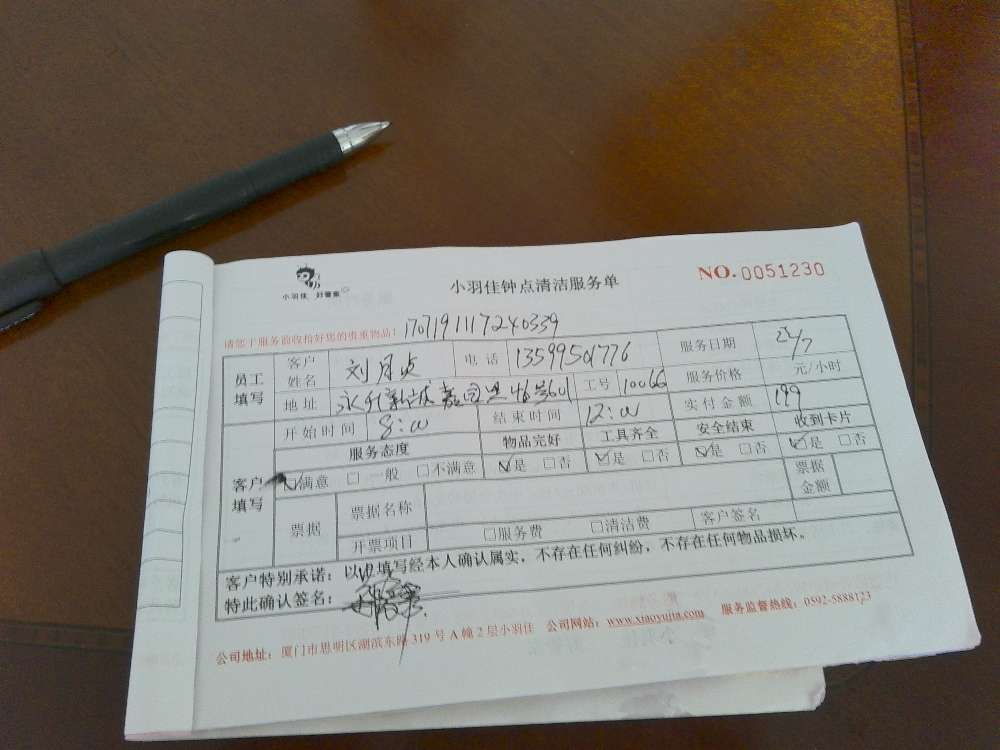 小羽佳 好管家
小羽佳钟点清洁服务单
NO.0051230
请您于服务前收拾好您的贵重物品! 1707191117240339
员工填写 客户姓名 刘月贞 电话 13599501776 服务日期 27/7
地址 46号601 工号 10066 服务价格 元/小时
开始时间 8:00 结束时间 12:00 实付金额 199
客户填写 服务态度 物品完好 工具齐全 安全结束 收到卡片
☑满意 □一般 □不满意 ☑是 □否 ☑是 □否 ☑是 □否 ☑是 □否
票据 票据名称 票据金额
开票项目 □服务费 □清洁费 客户签名
客户特别承诺:以上填写经本人确认属实,不存在任何纠纷,不存在任何物品损坏。
特此确认签名:
公司地址:厦门市思明区湖滨东路319号A幢2层小羽佳 公司网站:www.xiaoyujia.com 服务监督热线:0592-5888123